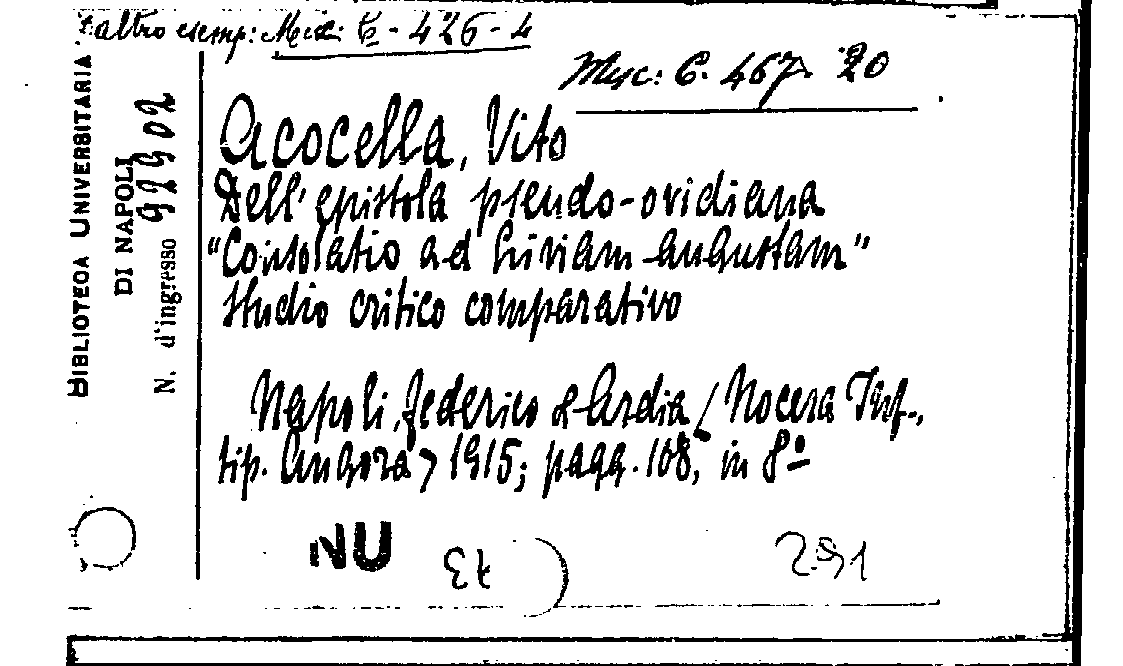 altro esemp: Misc: C - 426 - 4
Misc: C. 467. 20
BIBLIOTECA UNIVERSITARIA
DI NAPOLI
N. d'ingresso 92902
Acocella, Vito
Dell'epistola pseudo-ovidiana
"Consolatio ad Liviam Augustam"
Studio critico comparativo
Napoli, Federico & Ardia (Nocera Inf.,
tip. Angora) 1915; pagg. 108, in 8º
NU